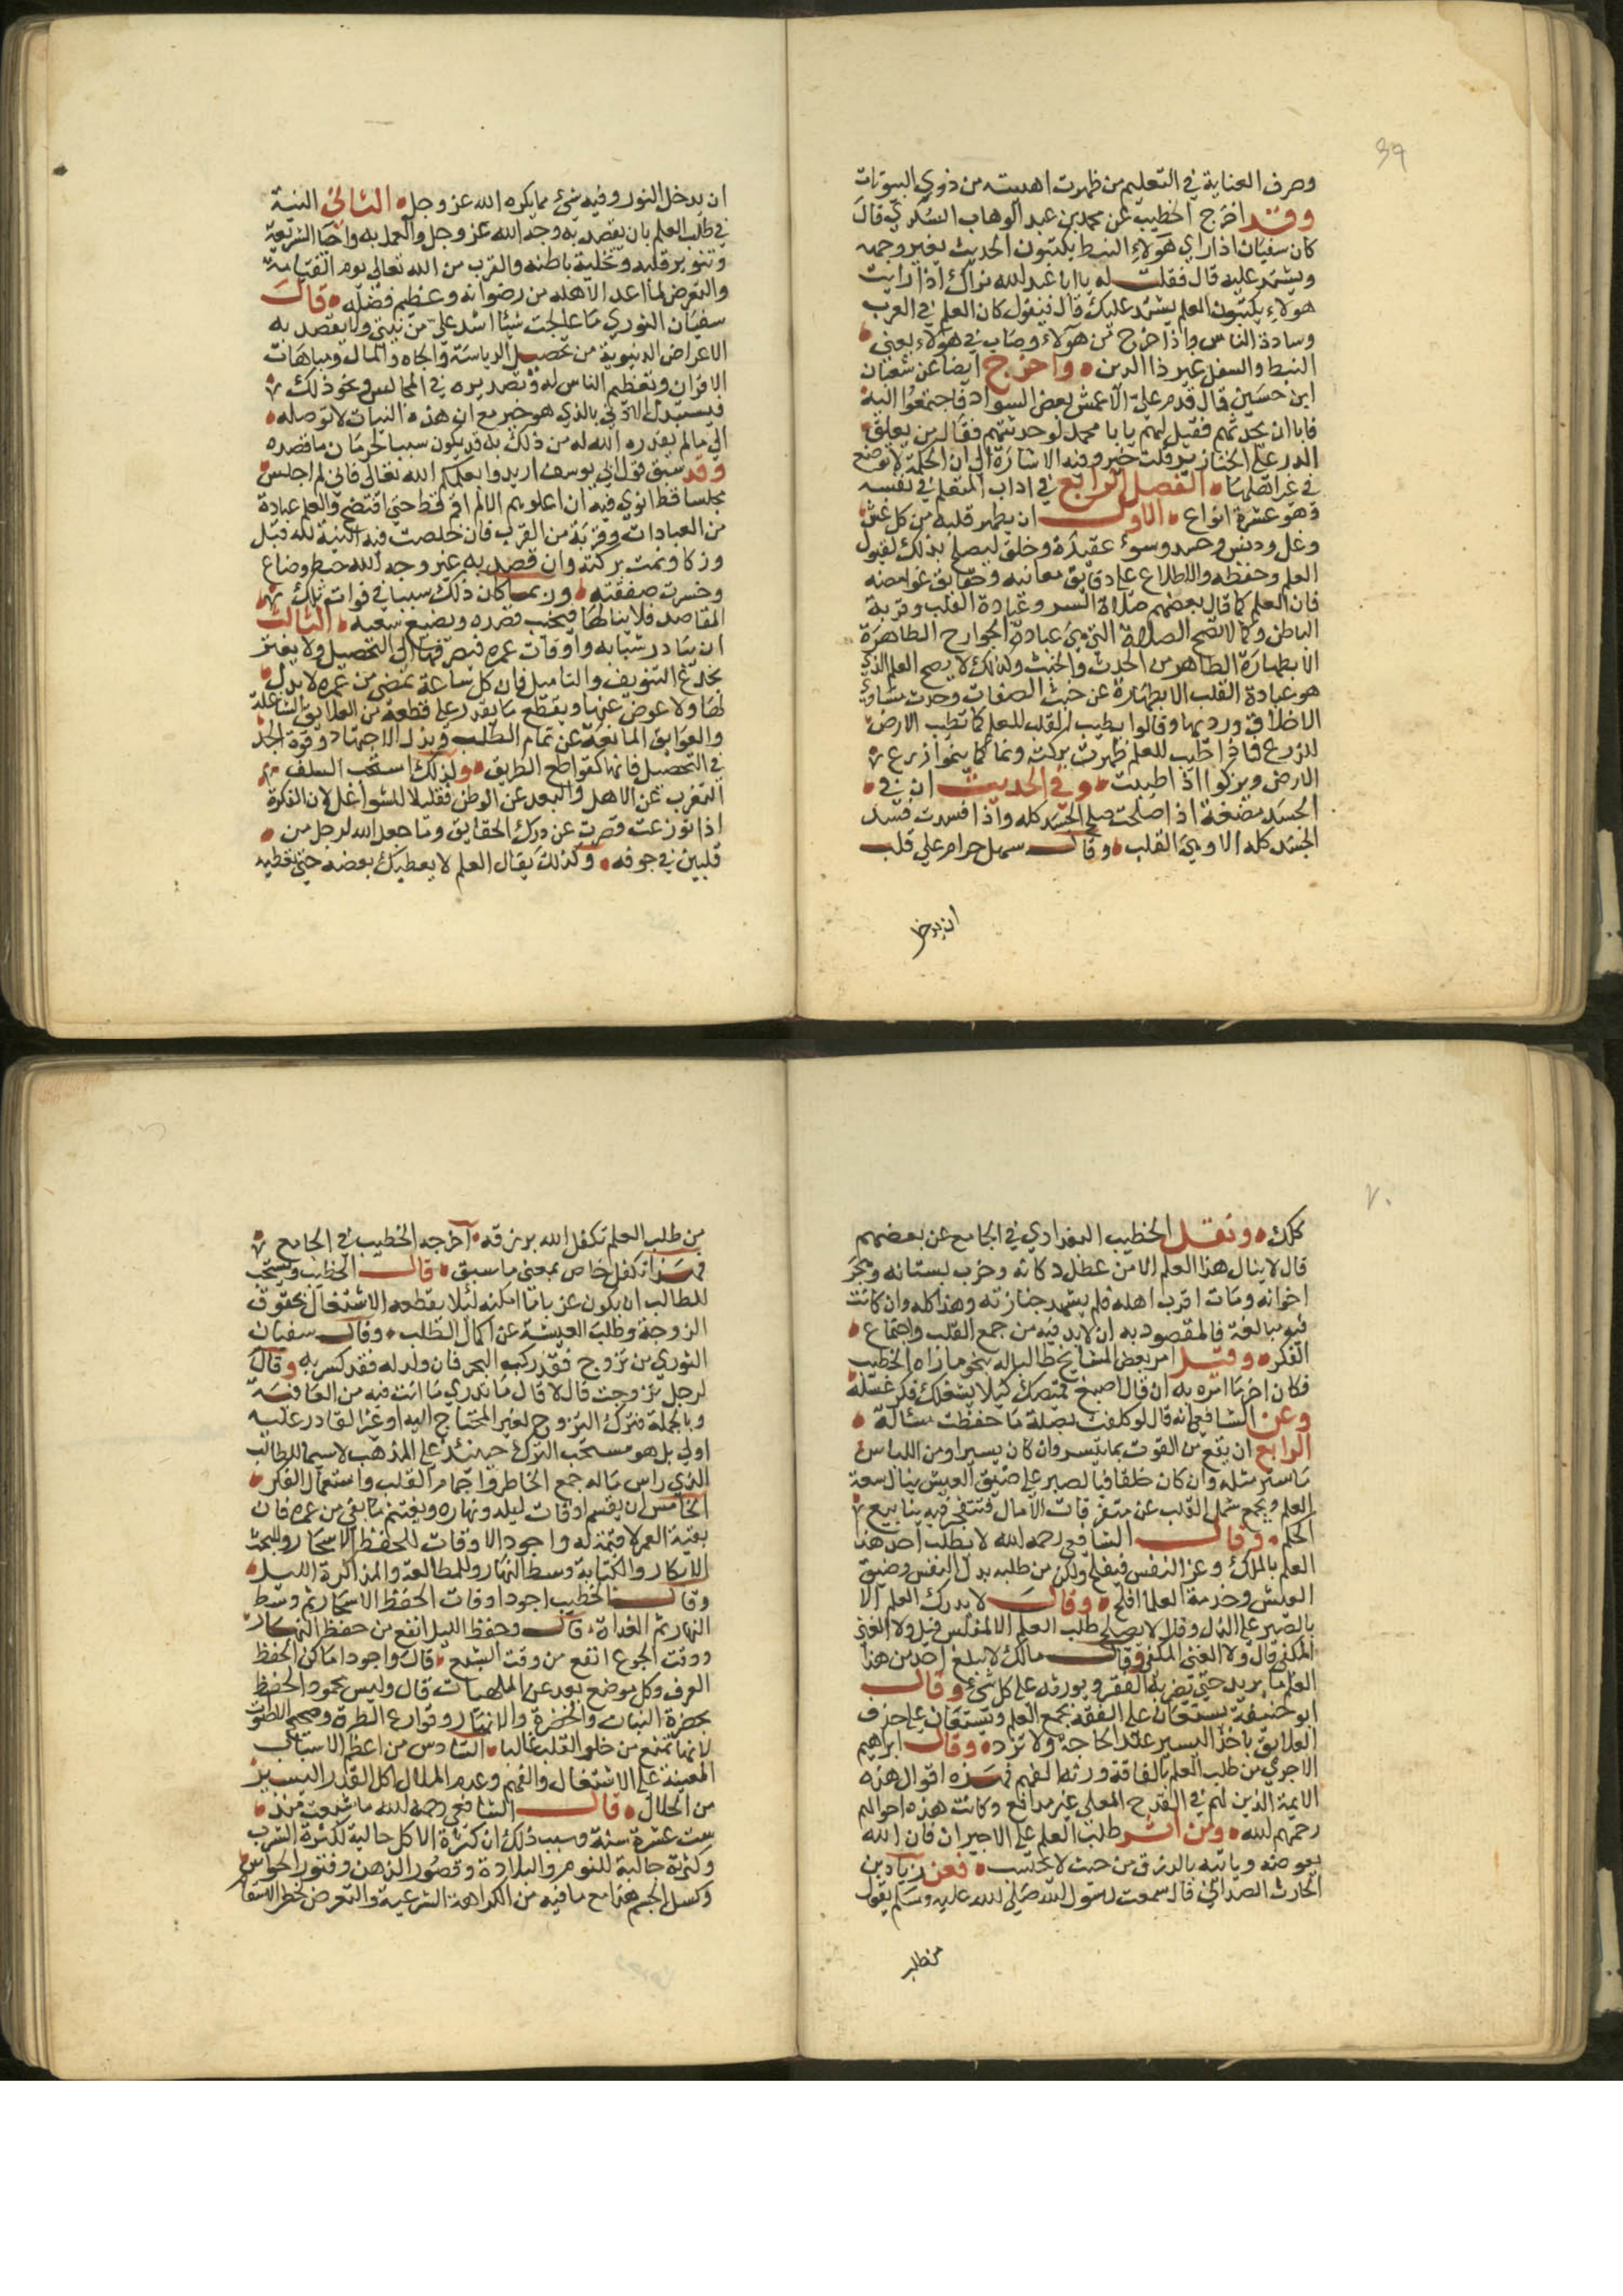 39
وصرف العناية في التعليم من ظهرت اهليته من ذوي البيوتات
وقد اخرج الخطيب عن محمد بن عبد الوهاب السكري قال
كان سفيان اذا راي هولاء النبط يكتبون الحديث يغير وجهه
ويشتد عليه قال فقلت له يا ابا عبد الله نراك اذا رايت
هولاء يكتبون العلم يشتد عليك قال فيقول كان العلم في العرب
وسادة الناس واذا خرج من هولاء وصار في هولاء يعني
النبط والسفل غير ذا الدين واخرج ايضا عن
ابن حسين قال قدم علي الاعمش بعض السواد فاجتمعوا اليه
فابا ان يحدثهم فقيل لهم يا با محمد لو حدثتهم فقال من يعلق
الدر علي الخنازير قلت خير وفيه الاشارة الي ان الحكمة لا توضع
في غير اهلها الفصل الرابع في اداب المتعلم في نفسه
وهو عشرة انواع الاول ان يطهر قلبه من كل غش
وغل ودنس وحسد وسوء عقيدة وخلق ليصلح بذلك لقبول
العلم وحفظه والاطلاع علي دقايق معانيه وحقايق غوامضه
فان العلم كما قال بعضهم صلاة السر وعبادة القلب وقربة
الباطن وكما لا تصح الصلاة التي هي عبادة الجوارح الظاهرة
الا بطهارة الظاهر من الحدث والخبث ولذلك لا يصح العلم الذي
هو عبادة القلب الا بطهارة عن خبث الصفات وحدث مساوئ
الاخلاق ورديها وقالوا يطيب القلب للعلم كما تطيب الارض
للزرع فاذا طيب للعلم ظهرت بركته ونما كما ينموا زرع
الارض ويزكوا اذا اطيبت وفي الحديث ان في
الجسد مضغة اذا صلحت صلح الجسد كله واذا فسدت فسد
الجسد كله الا وهي القلب وقال سهل حرام علي قلب
ان يدخل
ان يدخل النور وفيه شيء مما يكره الله عز وجل الثاني النية
في طلب العلم بان يقصد به وجه الله عز وجل والعمل به واحيا الشريعة
وتنوير قلبه وتحلية باطنه والقرب من الله تعالي يوم القيامة
والتعرض لما اعد لاهله من رضوانه وعظيم فضله قال
سفيان الثوري ما عالجت شيئا اشد علي من نيتي ولا يقصد به
الاعراض الدنيوية من تحصيل الرياسة والجاه والمال ومباهات
الاقران وتعظيم الناس له وتصديره في المجالس ونحو ذلك
فيستبدل الادني بالذي هو خير مع ان هذه النيات لا توصله
الي ما لم يقدره الله له من ذلك بل قد يكون سببا لحرمان ما قصده
وقد سبق قول ابي يوسف اريدوا بعلمكم الله تعالي فاني لم اجلس
مجلسا قط انوي فيه ان اعلوهم الا لم اقم قط حتي افتضح والعلم عبادة
من العبادات وقربة من القرب فان خلصت فيه النية لله قبل
وزكا ونمت بركته وان قصد به غير وجه الله حبط وضاع
وخسرت صفقته وربما كان ذلك سببا في فوات تلك
المقاصد فلا ينالها فيخيب قصده ويضيع سعيه الثالث
ان يبادر شبابه واوقات عمره فيصرفها الي التحصيل ولا يغتر
بخدع التسويف والتاميل فان كل ساعة تمضي من عمره لا بدل
لها ولا عوض عنها ويقطع ما يقدر علي قطعه من العلايق الشاغلة
والعوايق المانعة عن تمام الطلب وبذل الاجتهاد وقوة الجد
في التحصيل فانها كقواطع الطريق ولذلك استحب السلف
التغرب عن الاهل والبعد عن الوطن تقليلا للشواغل لان الفكرة
اذا توزعت قصرت عن درك الحقايق وما جعل الله لرجل من
قلبين في جوفه وكذلك يقال العلم لا يعطيك بعضه حتي تعطيه
٧٠
كلك ونقل الخطيب البغدادي في الجامع عن بعضهم
قال لا ينال هذا العلم الا من عطل دكانه وخرب بستانه وهجر
اخوانه ومات اقرب اهله فلم يشهد جنازته وهذا كله وان كانت
فيه مبالغة فالمقصود به ان لا بد فيه من جمع القلب واجتماع
الفكر وقيل امر بعض المشايخ طالبا له بنحو ما رآه الخطيب
فكان اخر ما امره به ان قال اصبغ قميصك كيلا يشغلك فكر غسله
وعن الشافعي انه قال لو كلفت بصلة ما حفظت مسالة
الرابع ان يقنع من القوت بما يتيسر وان كان يسيرا ومن اللباس
ما ستر مثله وان كان خلقا فبالصبر علي ضيق العيش ينال سعة
العلم ويجمع شمل القلب عن متفرقات الامال فتتفجر فيه ينابيع
الحكم وقال الشافعي رحمه الله لا يطلب احد هذا
العلم بالملك وعز النفس فيفلح ولكن من طلبه بذل النفس وضيق
العيش وخدمة العلما افلح وقال لا يدرك العلم الا
بالصبر علي الذل وقال لا يصلح طلب العلم الا لمفلس قيل ولا الغني
المكفي قال ولا الغني المكفي وقال مالك لا يبلغ احد من هذا
العلم ما يريد حتي يضر به الفقر ويوثره علي كل شيء وقال
ابو حنيفة يستعان علي الفقه بجمع العلم ويستعان علي حذف
العلايق باخذ اليسير عند الحاجة ولا تزد وقال ابراهيم
الاجري من طلب العلم بالفاقة ورث الفهم فهذه اقوال هذه
الايمة الذين لهم في القدح المعلي غير مدافع وكانت هذه احوالهم
رحمهم الله ومن اثر طلب العلم علي الاجيران فان الله
يعوضه وياتيه بالرزق من حيث لا يحتسب فعن زياد بن
الحارث الصدائي قال سمعت رسول الله صلي الله عليه وسلم يقول
من طلب
من طلب العلم تكفل الله برزقه اخرجه الخطيب في الجامع
فهذا تكفل خاص بمعني ما سبق قال الخطيب ويستحب
للطالب ان يكون عزبا ما امكنه لئلا يقطعه الاشتغال بحقوق
الزوجة وطلب المعيشة عن اكمال الطلب وقال سفيان
الثوري من تزوج فقد ركب البحر فان ولد له فقد كسر به وقال
لرجل تزوجت قال لا قال ما تدري ما انت فيه من العافية
وبالجملة فترك التزوج لغير المحتاج اليه او غير القادر عليه
اولي بل هو مستحب الترك حينئذ علي المذهب لا سيما للطالب
الذي راس ماله جمع الخاطر واجمام القلب واستعمال الفكر
الخامس ان يقسم اوقات ليله ونهاره ويغتنم ما بقي من عمره فان
بقية العمر لا قيمة له واجود الاوقات للحفظ الاسحار وللبحث
الابكار وللكتابة وسط النهار وللمطالعة والمذاكرة الليل
وقال الخطيب اجود اوقات الحفظ الاسحار ثم وسط
النهار ثم الغداة قال وحفظ الليل انفع من حفظ النهار
ووقت الجوع انفع من وقت الشبع قال واجود اماكن الحفظ
الغرف وكل موضع بعد عن الملهيات قال وليس بمحمود الحفظ
بحضرة النبات والخضرة والانهار وقوارع الطرق وضجيج الاصوات
لانها تمنع من خلو القلب غالبا السادس من اعظم الاسباب
المعينة علي الاشتغال والفهم وعدم الملال اكل القدر اليسير
من الحلال قال الشافعي رحمه الله ما شبعت منذ
ست عشرة سنة وسبب ذلك ان كثرة الاكل جالبة لكثرة الشرب
وكثرته جالبة للنوم والبلادة وقصور الذهن وفتور الحواس
وكسل الجسم هذا مع ما فيه من الكراهة الشرعية والتعرض لخطر الاسقام